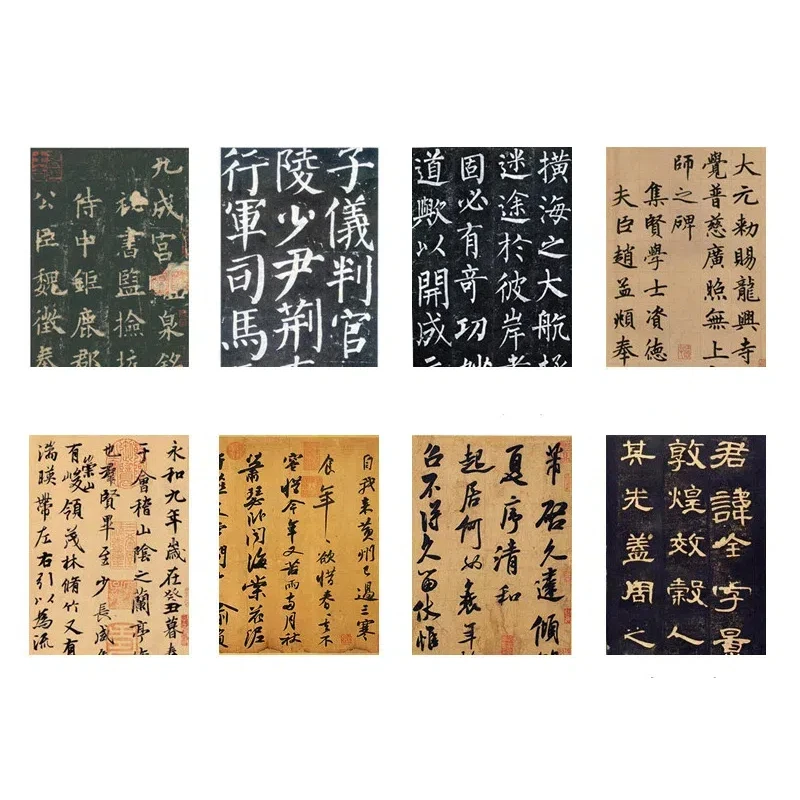 九成宮泉銘
秘書監撿挍
侍中鉅鹿郡
公臣魏徵奉
子儀判官
陵少尹荆
行軍司馬
橫海之大航極
迷途於彼岸者
固必有奇功妙
道歟以開成元
大元勑賜龍興寺
覺普慈廣照無上
師之碑
集賢學士資德
夫臣趙孟頫奉
永和九年歲在癸丑暮春
于會稽山陰之蘭亭
也羣賢畢至少長咸
有崇山峻領茂林脩竹又有
湍暎帶左右引以為流
自我来黃州已過三寒
食年〻欲惜春〻去不
容惜今年又苦雨兩月秋
蕭瑟卧聞海棠花泥
芾啓久違傾
夏序清和
起居何如衰年
召不得久留伏惟
君諱全字景
敦煌效穀人
其先蓋周之